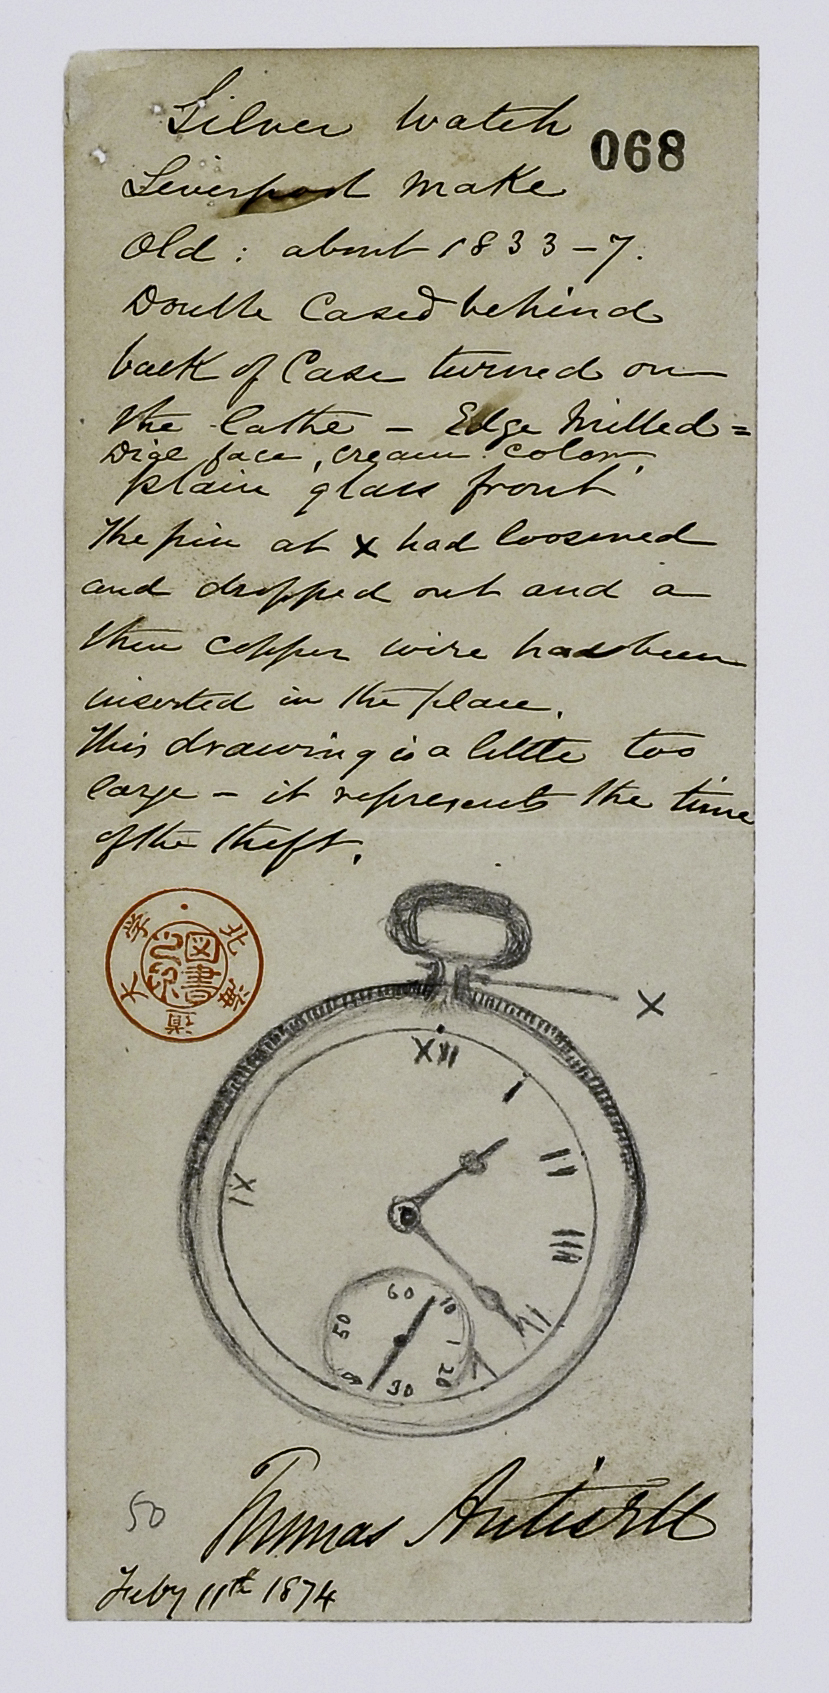 Silver Watch
068
Liverpool make
Old : about 1833-7.
Double Cased behind
back of Case turned on
the lathe - Edge Milled =
Dial face, cream color
plain glass front
The pin at x had loosened
and dropped out and a
thin copper wire had been
inserted in the place.
This drawing is a little too
large - it represents the time
of the theft.
北海道大学
図書之印
X
XII
I
II
III
IX
60
10
50
20
30
50
Thomas Antisell
July 11th 1874